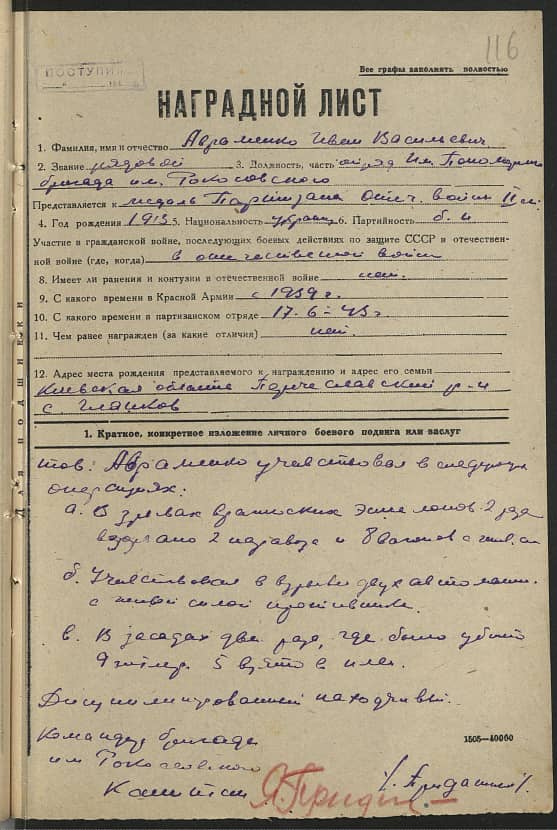 116
ПОСТУПИ
Все графы заполнять полностью
НАГРАДНОЙ ЛИСТ
1. Фамилия, имя и отчество Авраменко Иван Васильевич
2. Звание рядовой 3. Должность, часть отряд им. Пономаренко
бригада им. Рокосовского
Представляется к медаль Партизана отеч. войны II ст.
4. Год рождения 1913 5. Национальность украин 6. Партийность б. п
Участие в гражданской войне, последующих боевых действиях по защите СССР и отечествен-
ной войне (где, когда) в отечественной войне
8. Имеет ли ранения и контузии в отечественной войне нет.
9. С какого времени в Красной Армии с 1939 г.
10. С какого времени в партизанском отряде 17.6-43 г
11. Чем ранее награжден (за какие отличия) нет.
12. Адрес места рождения представляемого к награждению и адрес его семьи
Киевская область р-н
с.
Для подшивки
1. Краткое, конкретное изложение личного боевого подвига или заслуг
тов: Авраменко участвовал в следующих
операциях:
а. В взрывах вражеских эшелонов 2 раза
взорвано 2 паровоза и 8 вагонов с
б. Участвовал в взрыве двух автомашин
с живой силой противника.
в. В засадах два раза, где было убито
9 гитлер. 5 взято в плен.
Дисциплинированный находчивый.
Командир бригады
им Рокоссовского
Капитан
1505—40000